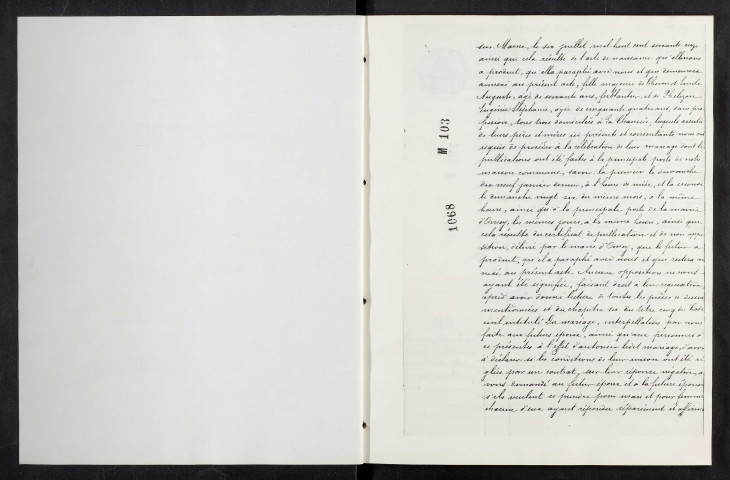 M 103
1068
sur Marne, le six juillet mil huit cent soixante onze
ainsi que cela résulte de l'acte de naissance qu'elle nous
a produit, qu'elle a paraphé avec nous et qui demeurera
annexé au présent acte, fille majeure de
Auguste, âgé de soixante ans, ferblantier, et de
Eugénie Stéphanie, âgée de cinquante quatre ans, sans pro
fession, tous trois domiciliés à la Chaussée, lesquels assistés
de leurs pères et mères ici présents et consentants nous ont
requis de procéder à la célébration de leur mariage dont les
publications ont été faites à la principale porte de notre
maison commune, savoir: la première le dimanche
dix neuf janvier dernier, à l'heure de midi, et la seconde
le dimanche vingt six du même mois, à la même
heure, ainsi qu'à la principale porte de la mairie
les mêmes jours, à la même heure, ainsi que
cela résulte du certificat de publication et de non oppo
sition, délivré par le maire que le futur a
produit, qu'il a paraphé avec nous et qui restera an
nexé au présent acte. Aucune opposition ne nous
ayant été signifiée, faisant droit à leur réquisition,
après avoir donné lecture de toutes les pièces ci dessus
mentionnées et du chapitre six du titre cinq du Code
civil intitulé Du mariage, interpellation par nous
faite aux futurs époux, ainsi qu'aux personnes
ici présentes à l'effet d'autoriser ledit mariage, d'avoir
à déclarer si les conditions de leur union ont été ré
glées par un contrat, sur leur réponse négative,
avons demandé au futur époux et à la future épouse
s'ils veulent se prendre pour mari et pour femme
chacun d'eux ayant répondu séparément et affirma